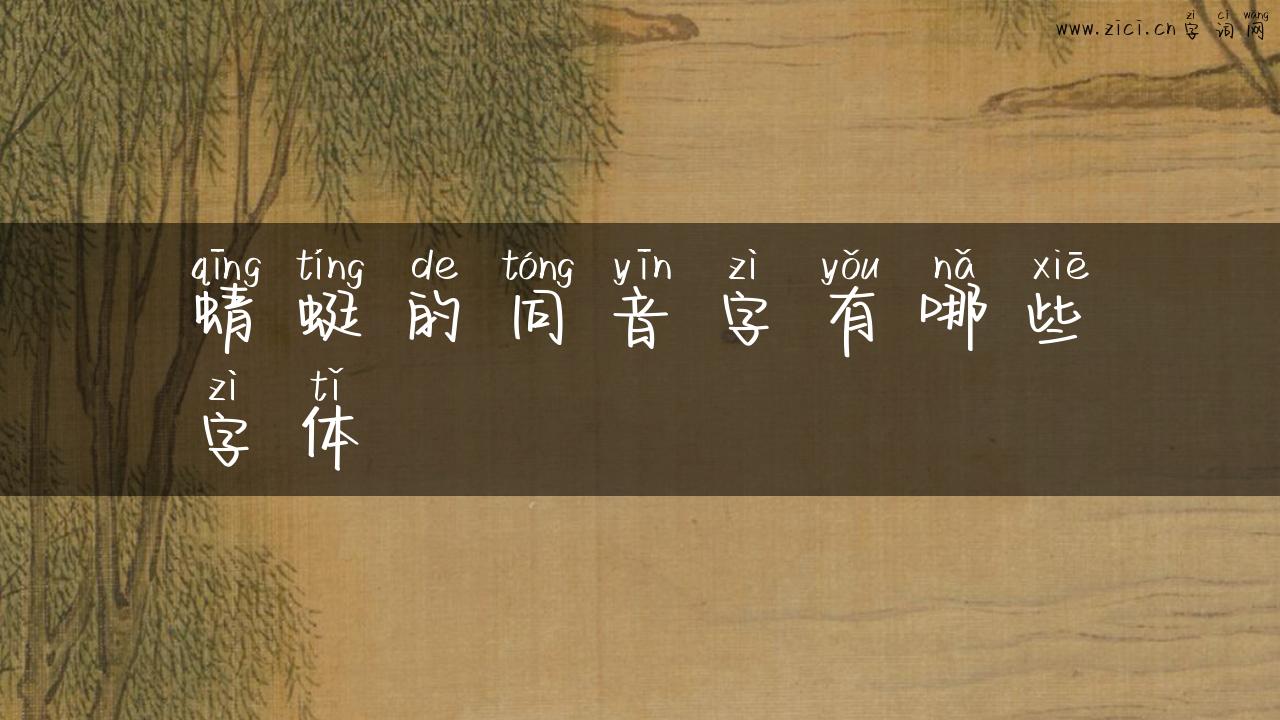 zì cí wǎng
www.zici.cn字词网
qīng tíng de tóng yīn zì yǒu nǎ xiē
蜻蜓的同音字有哪些
zì tǐ
字体